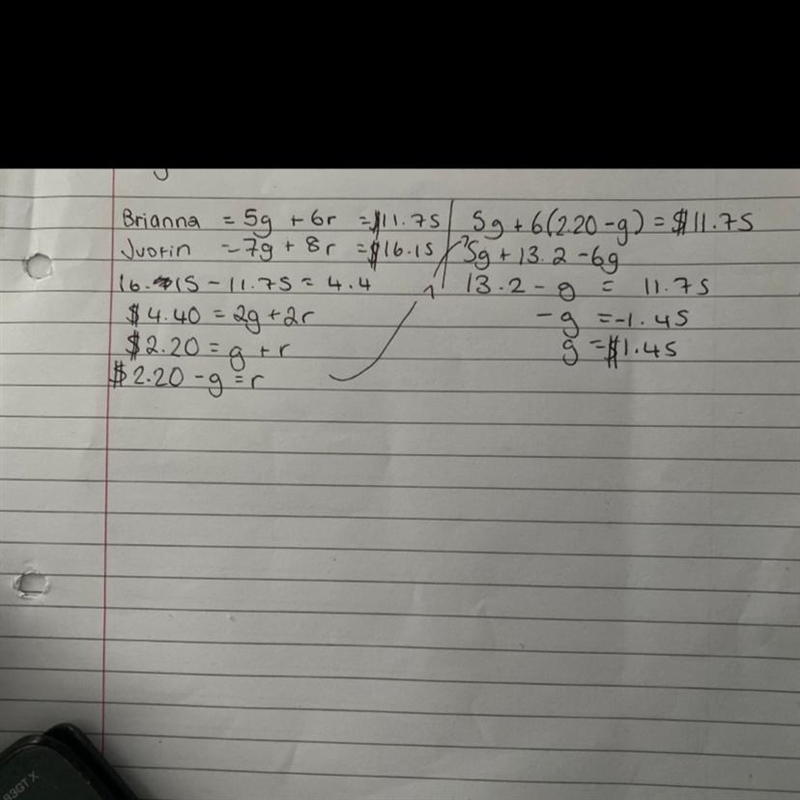 Brianna = 5g + 6r = $11.75
= 7g + 8r = $16.15
16.15 - 11.75 = 4.4
$4.40 = 2g + 2r
$2.20 = g + r
$2.20 - g = r
5g + 6(2.20 - g) = $11.75
5g + 13.2 - 6g
13.2 - g = 11.75
- g = -1.45
g = $1.45
83GTX